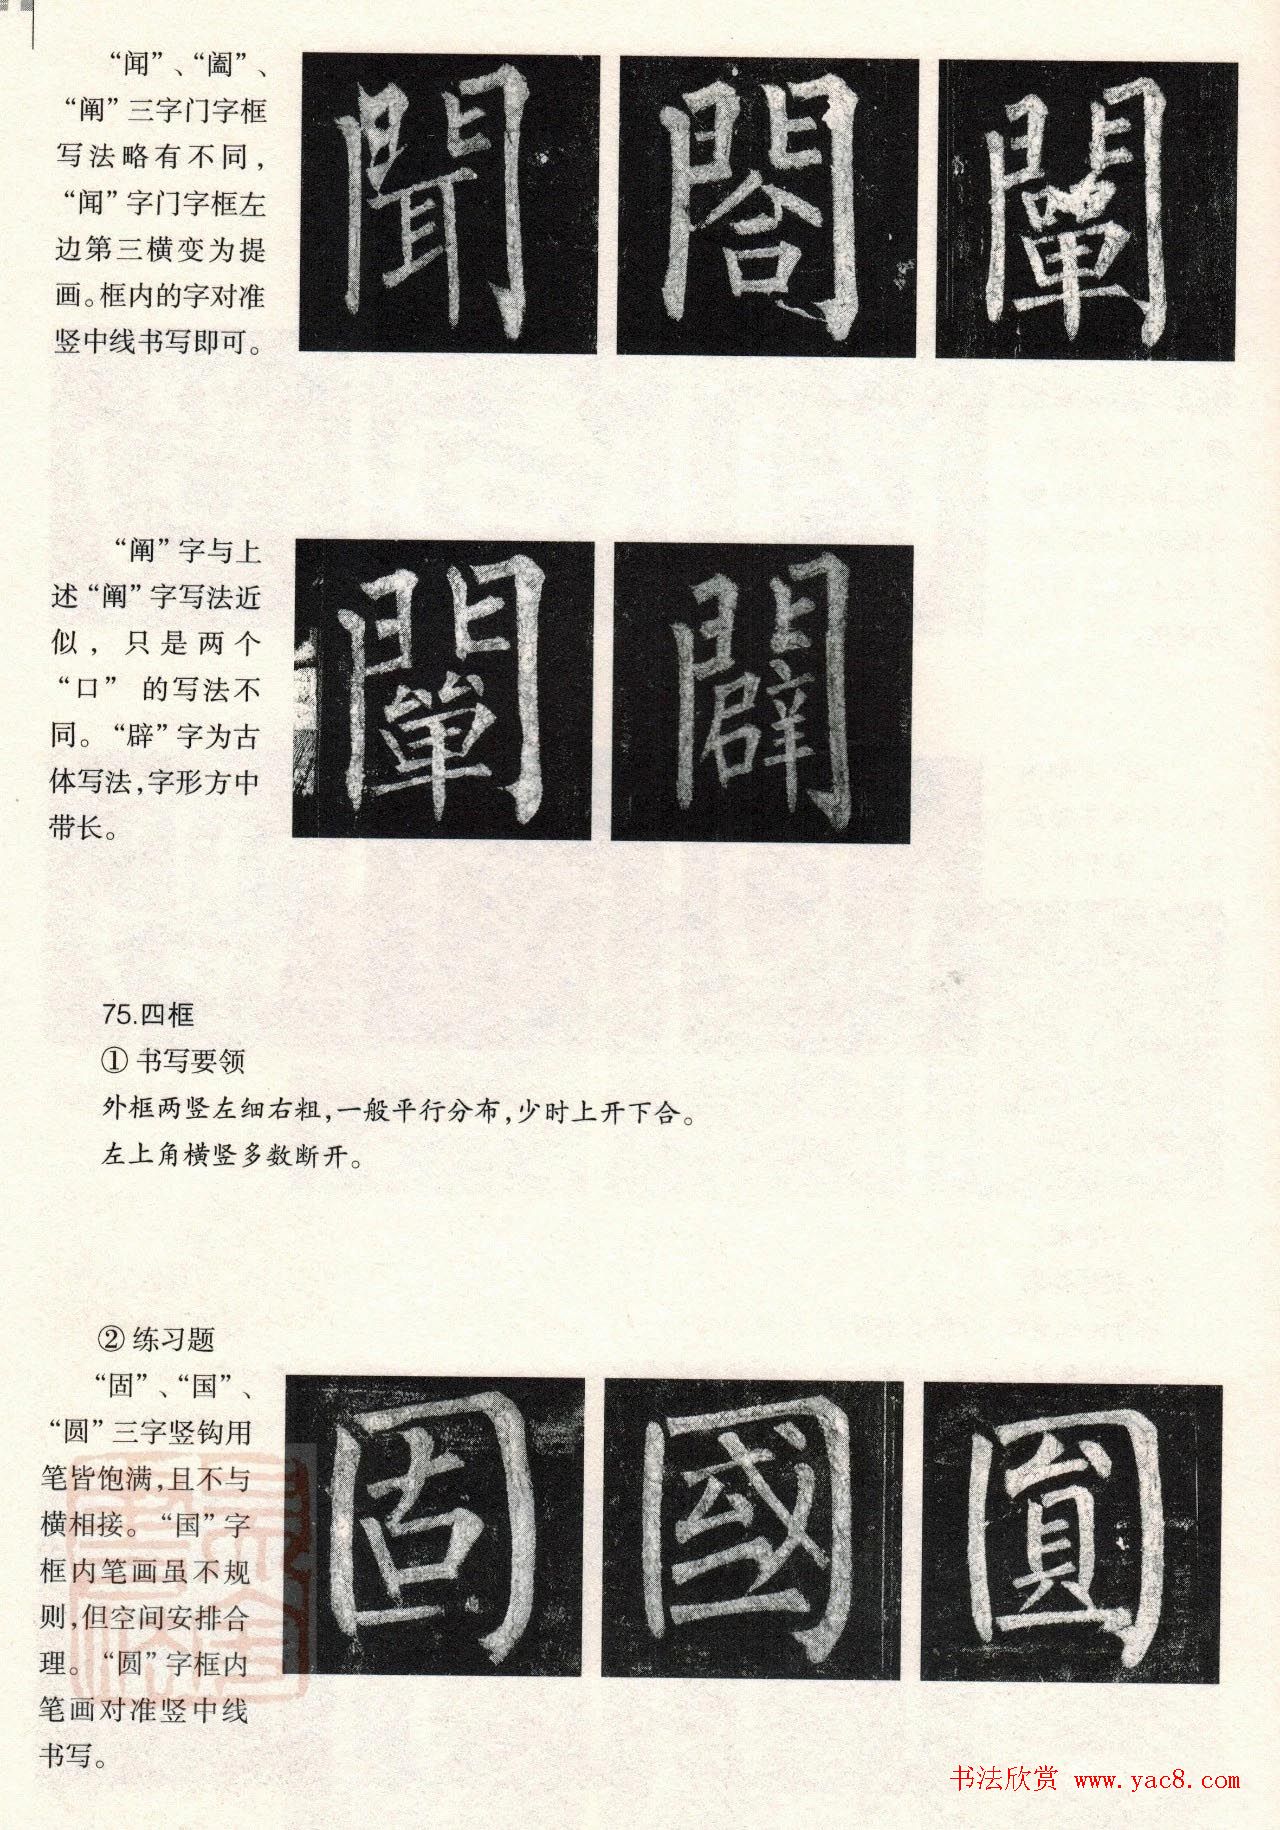 “闻”、“阖”、
“阐”三字门字框
写法略有不同，
“闻”字门字框左
边第三横变为提
画。框内的字对准
竖中线书写即可。
聞 閤 闡
“阐”字与上
述“阐”字写法近
似，只是两个
“口”的写法不
同。“辟”字为古
体写法，字形方中
带长。
闡 闢
75.四框
① 书写要领
外框两竖左细右粗，一般平行分布，少时上开下合。
左上角横竖多数断开。
② 练习题
“固”、“国”、
“圆”三字竖钩用
笔皆饱满，且不与
横相接。“国”字
框内笔画虽不规
则，但空间安排合
理。“圆”字框内
笔画对准竖中线
书写。
固 國 圓
书法欣赏 www.yac8.com